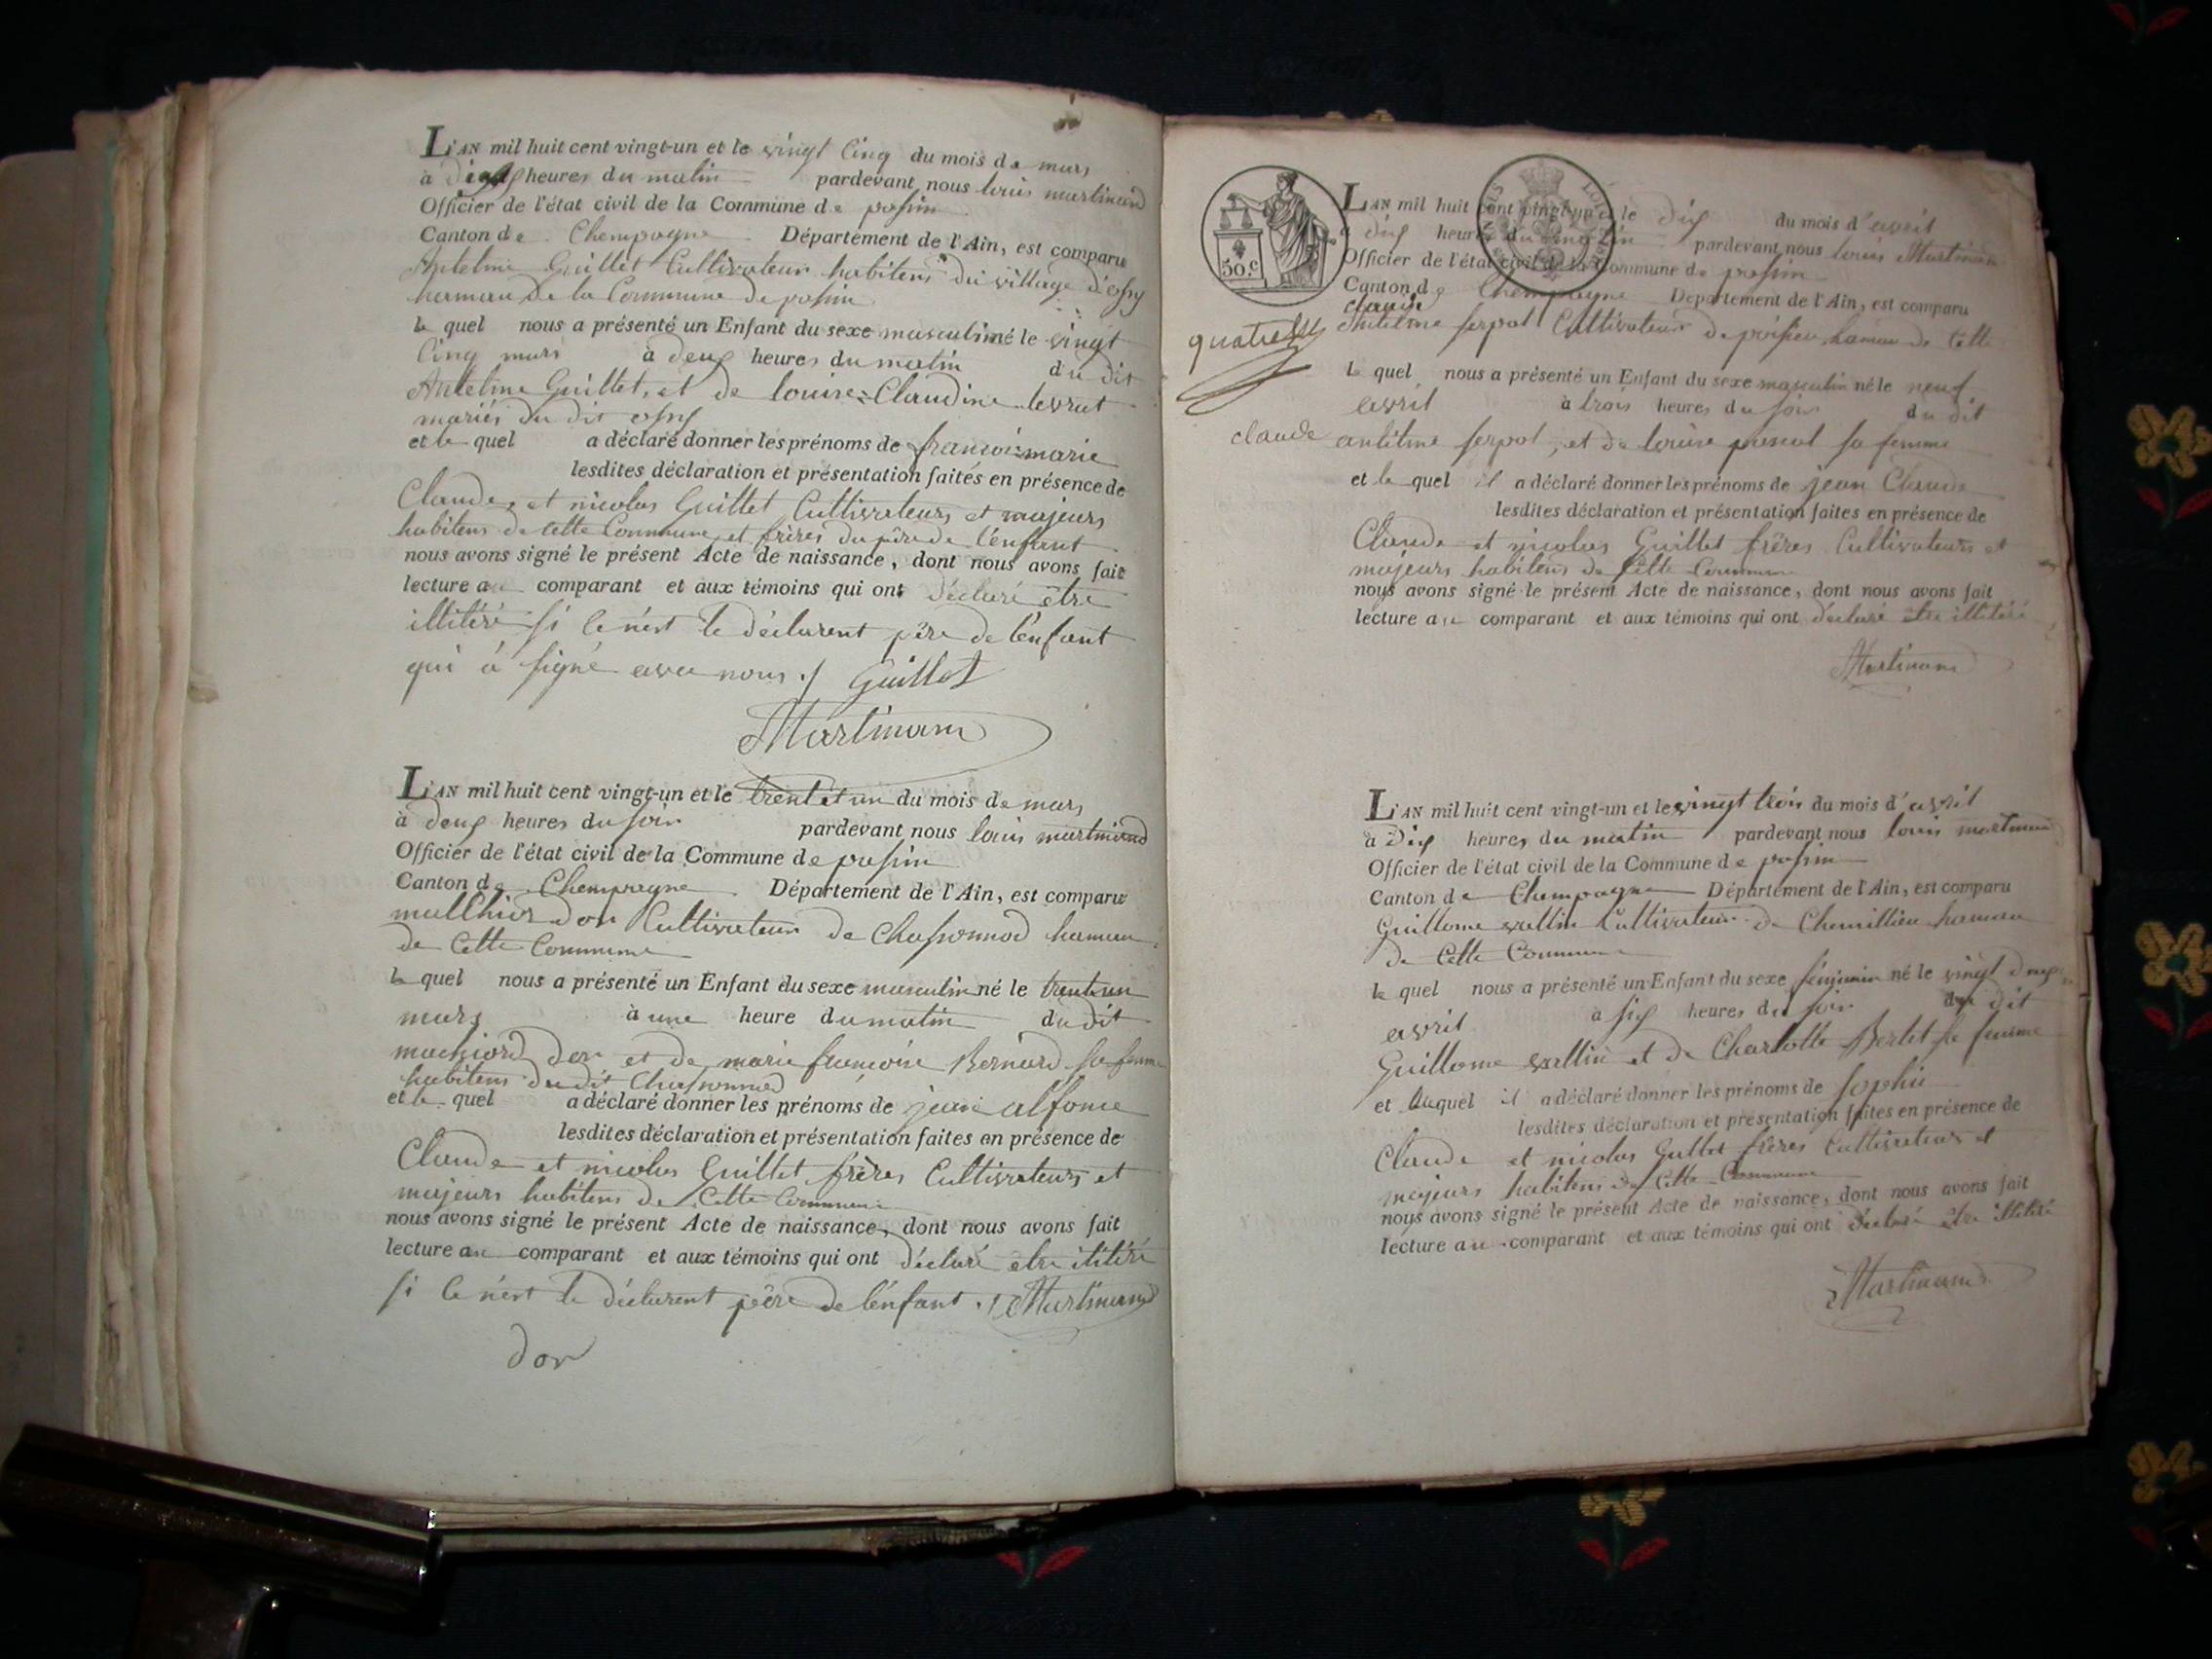 L'AN mil huit cent vingt-un et le vingt cinq du mois de mars
à heures du matin pardevant nous louis martinand
Officier de l'état civil de la Commune de possin
Canton de Champagne Département de l'Ain, est comparu
Antelme Guillet Cultivateur habitens du village d'ossy
hameau de la Commune de possin
le quel nous a présenté un Enfant du sexe masculin né le vingt
cinq mars à deux heures du matin du dit
Antelme Guillet, et de louise Claudine levrat
mariés du dit ossy
et le quel a déclaré donner les prénoms de françois marie
lesdites déclaration et présentation faites en présence de
Claude, et nicolas Guillet Cultivateurs et majeurs
habitens de cette Commune et frères du père de l'enfant
nous avons signé le présent Acte de naissance, dont nous avons fait
lecture au comparant et aux témoins qui ont déclaré être
illitéré si ce n'est le déclarent père de l'enfant
qui à signé avec nous ./ Guillet
Martinand
L'AN mil huit cent vingt-un et le trent et un du mois de mars
à deux heures du soir pardevant nous louis martinand
Officier de l'état civil de la Commune de possin
Canton de Champagne Département de l'Ain, est comparu
melchior dor Cultivateur de Chassonnod hameau
de cette Commune
le quel nous a présenté un Enfant du sexe masculin né le trent un
mars à une heure du matin du dit
dor et de marie françoise Bernard sa femme
habitens du dit Chassonnod
et le quel a déclaré donner les prénoms de jean alfonse
lesdites déclaration et présentation faites en présence de
Claude et nicolas Guillet frères Cultivateurs et
majeurs habitens de Cette Commune
nous avons signé le présent Acte de naissance, dont nous avons fait
lecture au comparant et aux témoins qui ont déclaré etre ilitéré
si ce n'est le déclarent père de l'enfant ./ Martinand
dor
50.c
L'AN mil huit cent vingt-un et le dix du mois d'avril
à dix heures du matin pardevant nous louis Martinand
Officier de l'état civil de la Commune de possin
Canton de Champagne Département de l'Ain, est comparu
claude
antelme serpol Cultivateur de poisieu hameau de cette
le quel nous a présenté un Enfant du sexe masculin né le neuf
avril à trois heures du soir du dit
claude antelme serpol, et de louise pascal sa femme
et le quel il a déclaré donner les prénoms de jean Claude
lesdites déclaration et présentation faites en présence de
Claude et nicolas Guillet frères Cultivateurs et
majeurs habitens de Cette Commune
nous avons signé le présent Acte de naissance, dont nous avons fait
lecture au comparant et aux témoins qui ont déclaré etre illitéré
Martinand
L'AN mil huit cent vingt-un et le vingt trois du mois d'avril
à Dix heures du matin pardevant nous louis martinand
Officier de l'état civil de la Commune de possin
Canton de Champagne Département de l'Ain, est comparu
Guillome vallin Cultivateur de Chemillieu hameau
de Cette Commune
le quel nous a présenté un Enfant du sexe feminin né le vingt deux
avril à six heures du soir du dit
Guillome vallin et de Charlotte Berlet sa femme
et laquel il a déclaré donner les prénoms de sophie
lesdites déclaration et présentation faites en présence de
Claude et nicolas Guillet frères Cultivateurs et
majeurs habitens de Cette Commune
nous avons signé le présent Acte de naissance, dont nous avons fait
lecture au comparant et aux témoins qui ont déclaré etre illitéré
Martinand